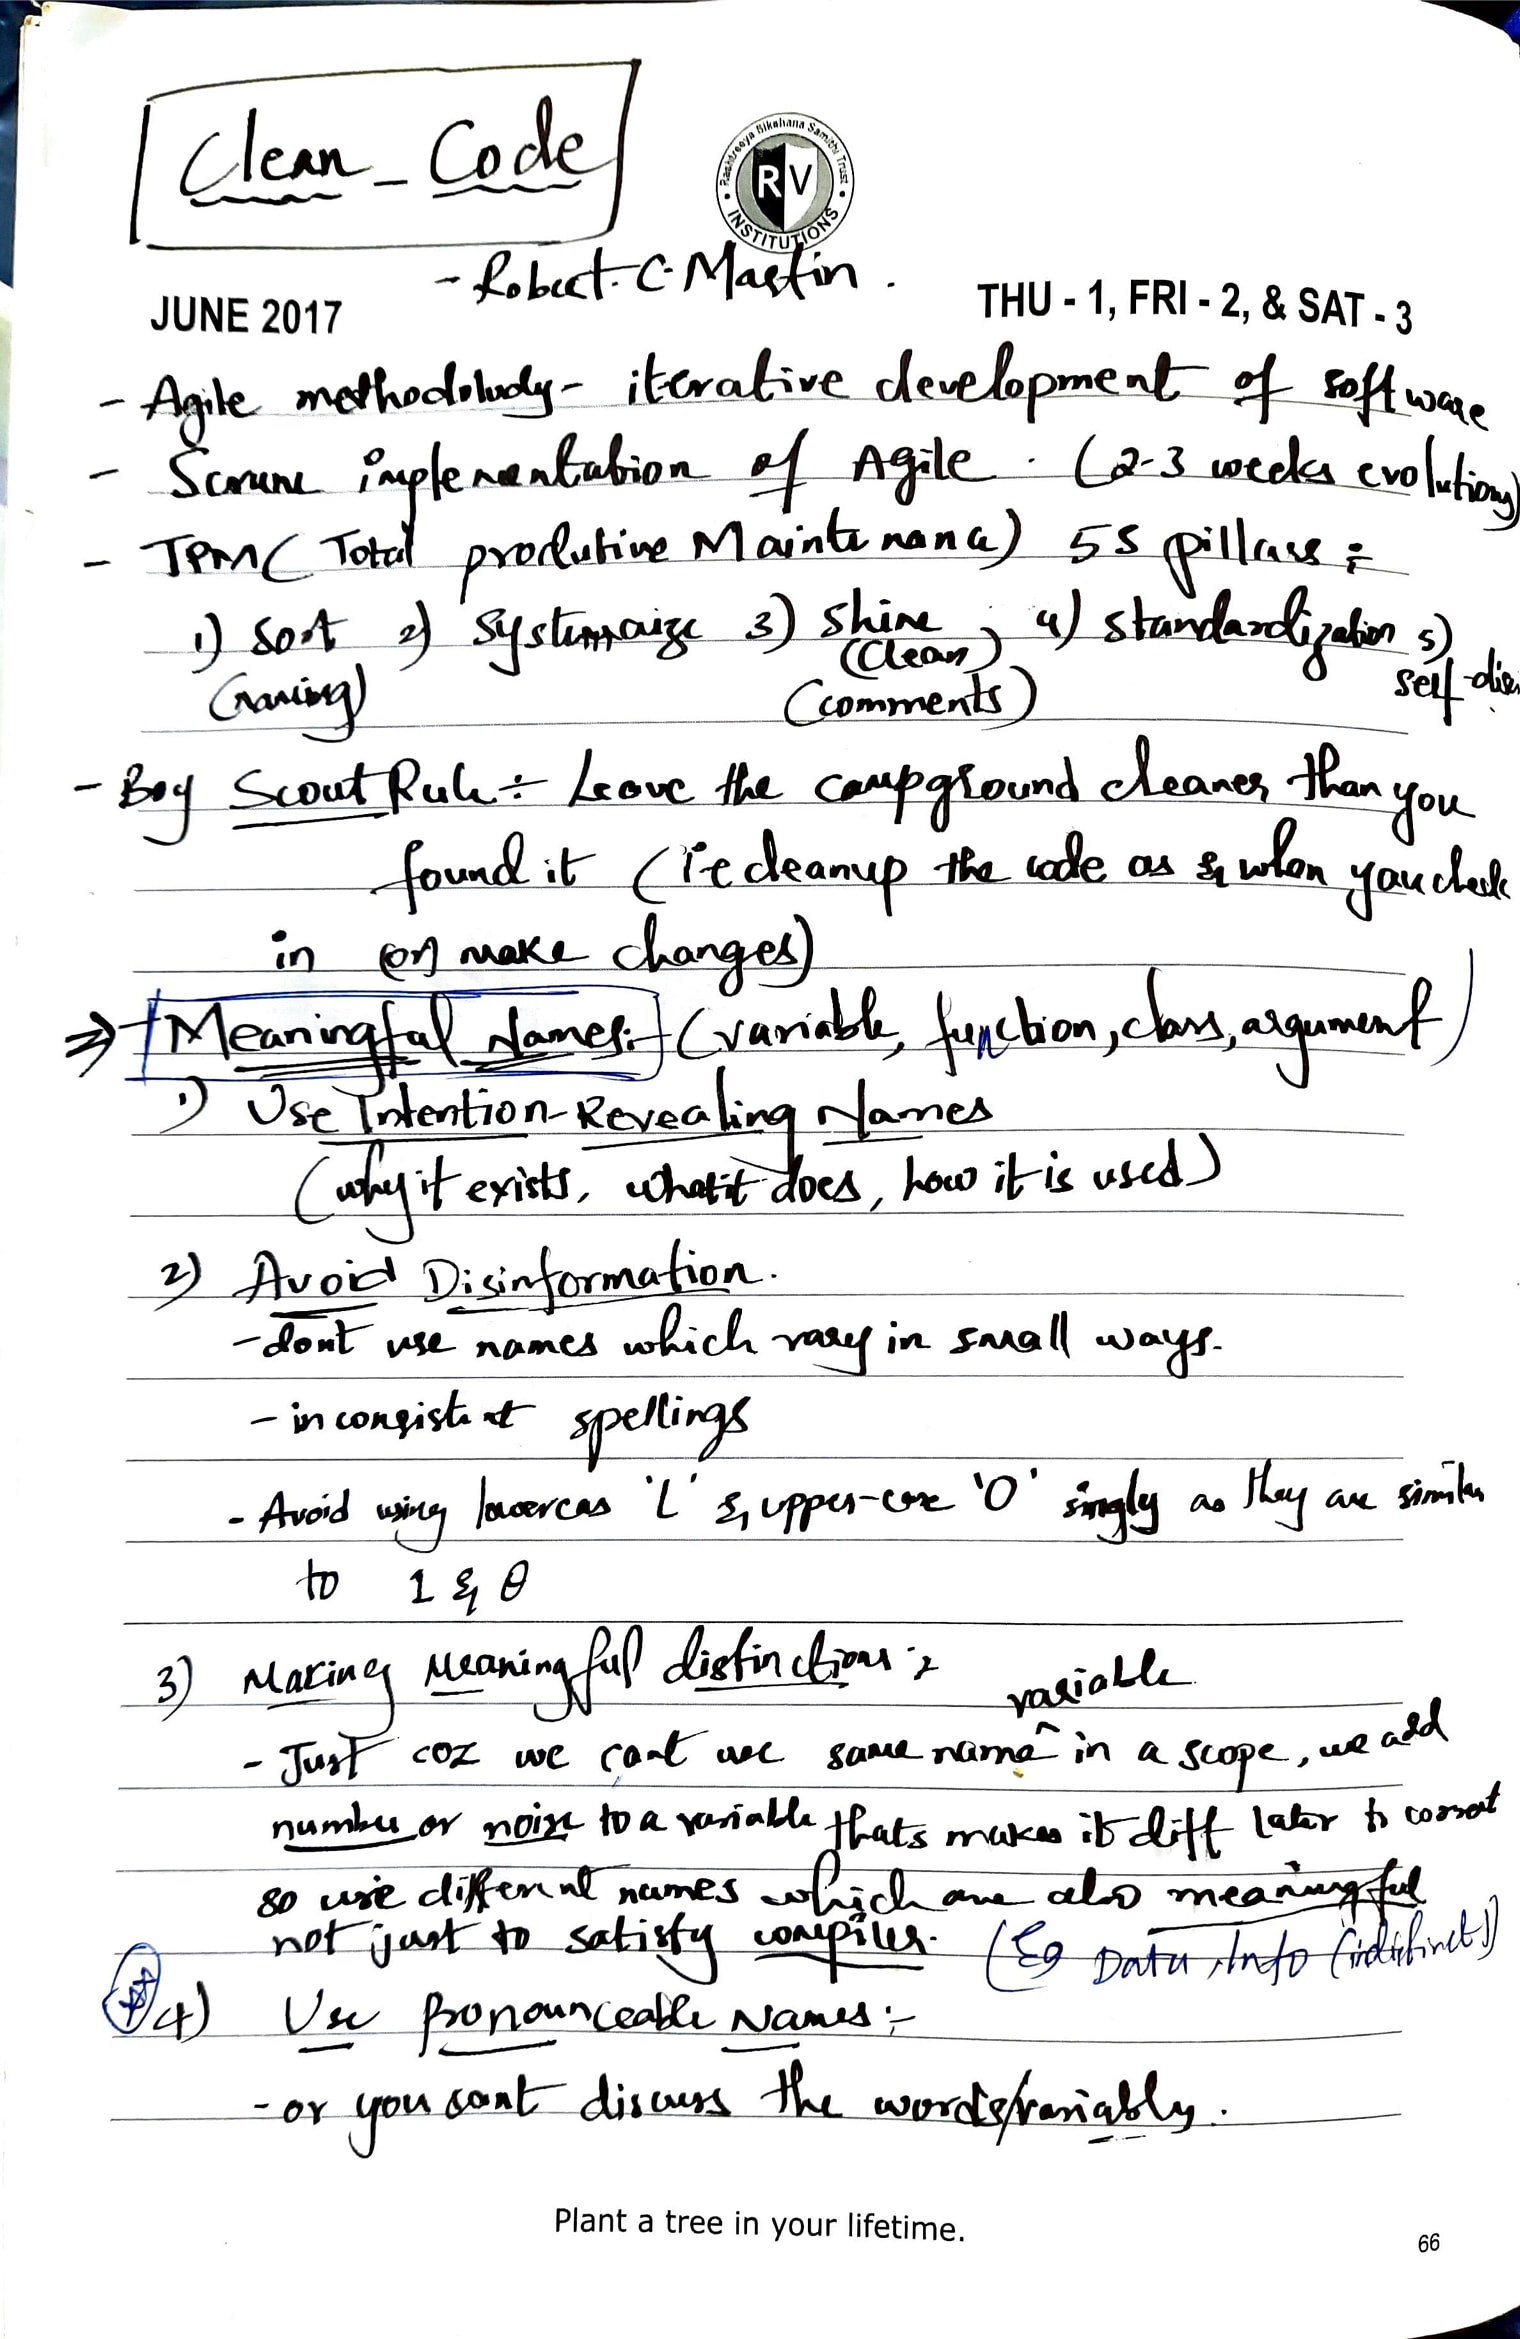 Clean_Code
Rashtreeya Sikshana Samithi Trust
RV
INSTITUTIONS
- Robert. C. Martin.
JUNE 2017
THU - 1, FRI - 2, & SAT - 3
- Agile methodoludy - iterative development of software
- Scrum implementation of Agile. (2-3 weeks evolutions)
- TPM (Total produtive Maintenance) 5S pillars :-
1) Sort 2) Systemmaize 3) Shine , 4) standardization 5)
(Clean)
self-dis
(naming)
(comments)
- Boy Scout Rule :- Leave the campground cleaner than you
found it (ie cleanup the code as & when you check
in (or) make changes)
=> Meaningful Names:- (variable, function, class, argument)
1) Use Intention-Revealing Names
(why it exists, what it does, how it is used)
2) Avoid Disinformation.
- dont use names which vary in small ways.
- inconsistent spellings
- Avoid using lowercas 'L' & upper-case 'O' singly as they are similar
to 1 & 0
3) Making Meaningful distinctions :-
variable
- Just coz we cant use same name ^ in a scope, we add
number or noise to a variable thats makes it diff later to correct
so use different names which are also meaningful
not just to satisfy compiler. (Eg Data, Info (indistinct))
4) Use Pronounceable Names :-
- or you cant discuss the words/variably.
Plant a tree in your lifetime.
66